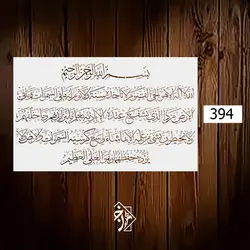 بسم الله الرحمن الرحيم
الله لا إله إلا هو الحي القيوم لا تأخذه سنة ولا نوم له ما في السموات وما في
الأرض من ذا الذي يشفع عنده إلا بإذنه يعلم ما بين أيديهم وما خلفهم
ولا يحيطون بشيء من علمه إلا بما شاء وسع كرسيه السموات والأرض ولا
يؤده حفظهما وهو العلي العظيم
394